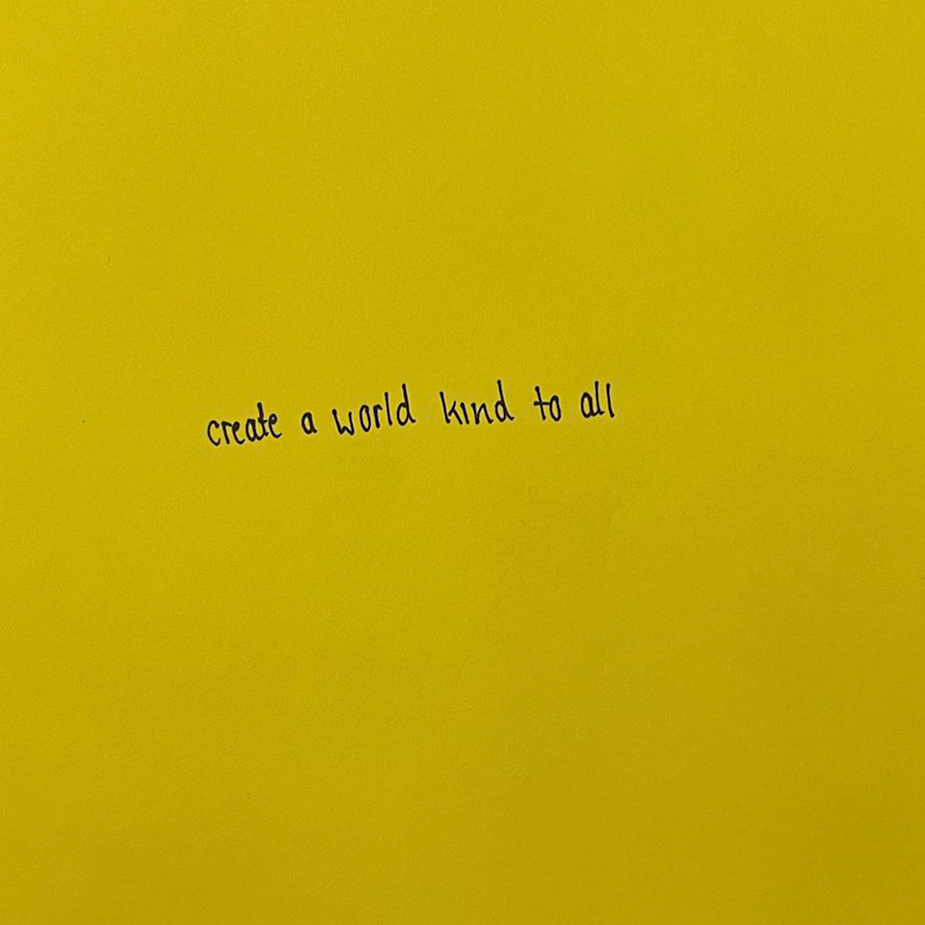 create a world kind to all